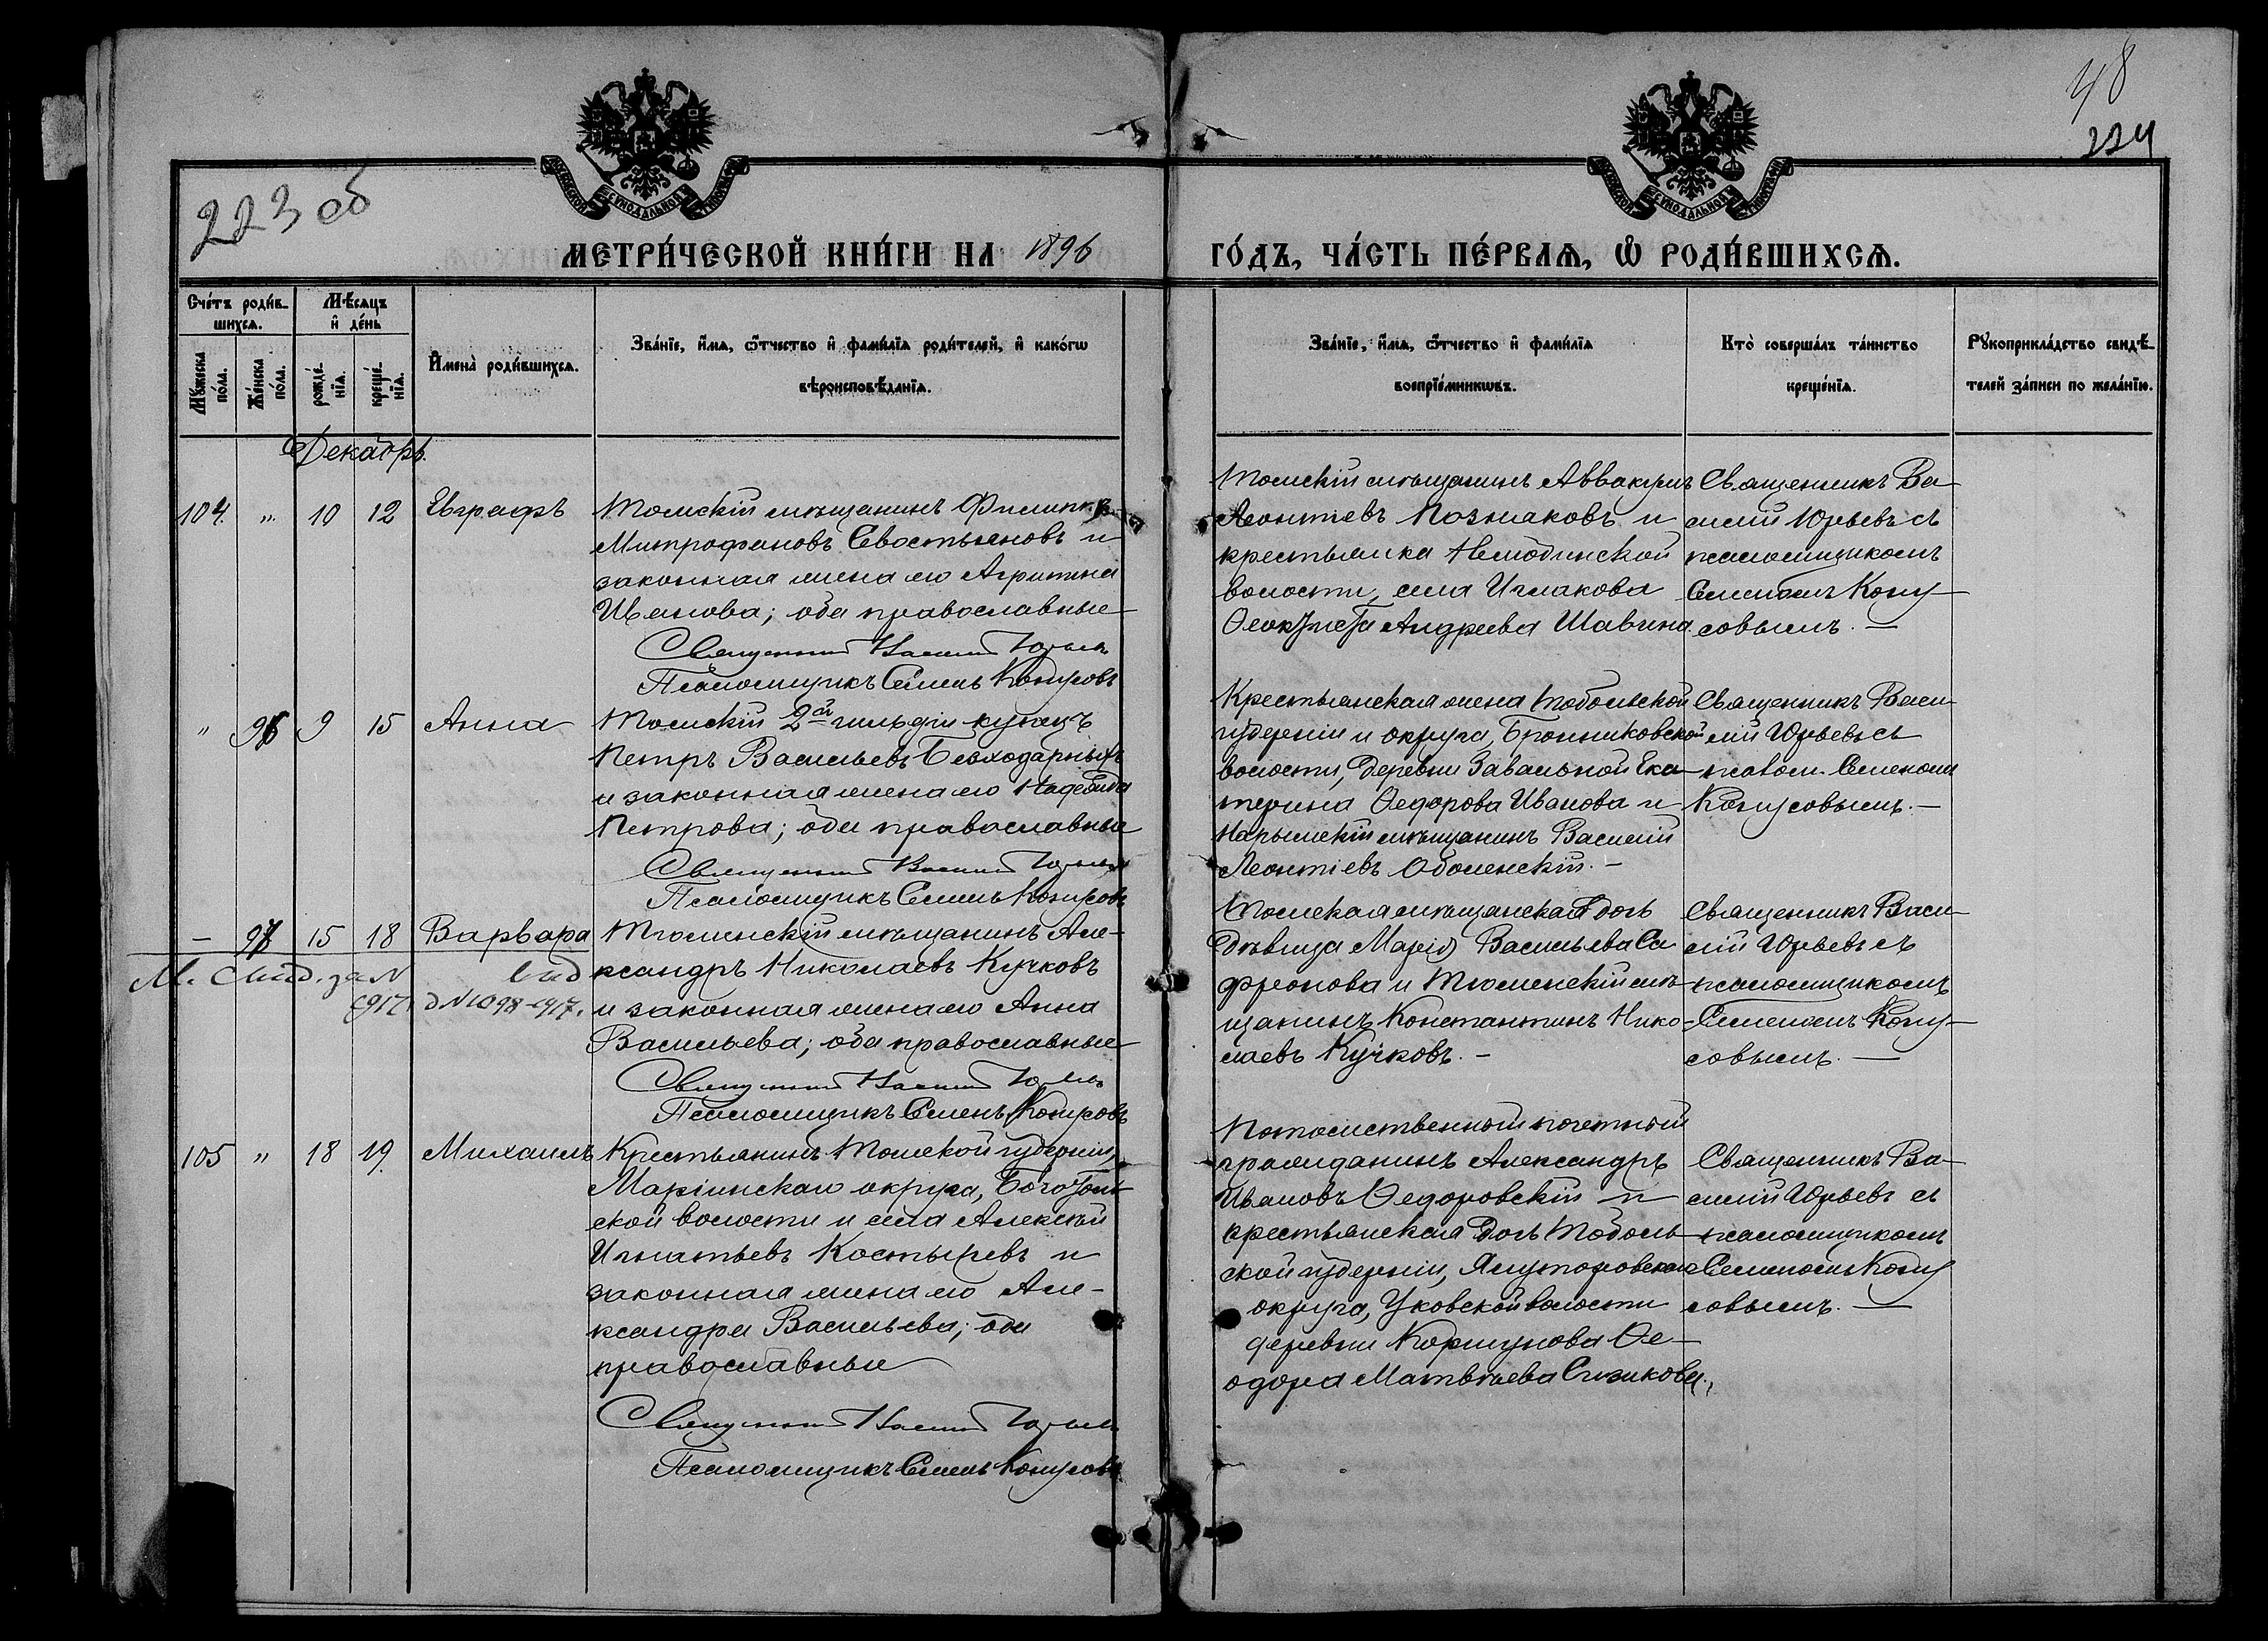 48
224
223 об
МЕТРИ́ЧЕСКОЙ КНИ́ГИ НА 1896 ГО́ДЪ, ЧА́СТЬ ПЕ́РВАѦ, Ѽ РОДИ́ВШИХСѦ.
Сче́тъ роди́в-
шихсѧ.
Мѣ́сѧцъ
и҆ де́нь
Мꙋ́жеска
по́ла.
Же́нска
по́ла.
рожде́-
нїѧ.
креще́-
нїѧ.
И҆мена̀ роди́вшихсѧ.
Зва́нїе, и҆́мѧ, ѻ҆́тчество и҆ фамѝлїѧ роди́телей, и҆ како́гѡ
вѣроисповѣ́данїѧ.
Зва́нїе, и҆́мѧ, ѻ҆́тчество и҆ фами́лїѧ
воспрїе́мникѡвъ.
Кто̀ соверша́лъ та́инство
креще́нїѧ.
Рꙋкоприкла́дство свидѣ́-
телей за́писи по жела́нїю.
Декабрь.
104. " 10 12 Евграфъ
Томскій мѣщанинъ Филиппъ
Митрофановъ Севостьяновъ и
законная жена его Агрипина
Иванова; оба православные
Священникъ Василій Юрьевъ
Псаломщикъ Семенъ Копусовъ
Томскій мѣщанинъ Аввакумъ
Леонтіевъ Позняковъ и
крестьянка Нелюбинской
волости, села Иглакова
Ѳеоктиста Андреева Шавина.
Священникъ Ва-
силій Юрьевъ съ
псаломщикомъ
Семеномъ Копу-
совымъ. —
" 96 9 15 Анна
Томскій 2й гильдіи купецъ
Петръ Васильевъ Безходарныхъ
и законная жена его Надежда
Петрова; оба православные
Священникъ Василій Юрьевъ
Псаломщикъ Семенъ Копусовъ
Крестьянская жена Тобольской
губерніи и округа, Бронниковской
волости, деревни Завальной Ека-
терина Ѳедорова Иванова и
Нарымскій мѣщанинъ Василій
Леонтіевъ Оболенскій. —
Священникъ Васи-
лій Юрьевъ съ
псалом. Семеномъ
Копусовымъ. —
— 97 15 18 Варвара
М. свид. за №
1917 д № 1098-1917.
Тюменскій мѣщанинъ Але-
ксандръ Николаевъ Кучковъ
и законная жена его Анна
Васильева; оба православные
Священникъ Василій Юрьевъ
Псаломщикъ Семенъ Копусовъ
Томская мѣщанская дочь
дѣвица Марія Васильева Са-
фронова и Тюменскій мѣ-
щанинъ Константинъ Нико-
лаевъ Кучковъ. —
Священникъ Васи-
лій Юрьевъ съ
псаломщикомъ
Семеномъ Копу-
совымъ. —
105 " 18 19. Михаилъ
Крестьянинъ Томской губерніи,
Маріинскаго округа, Боготоль-
ской волости и села Алексѣй
Игнатьевъ Костыревъ и
законная жена его Але-
ксандра Васильева; оба
православные
Священникъ Василій Юрьевъ
Псаломщикъ Семенъ Копусовъ
Потомственный почетный
гражданинъ Александръ
Ивановъ Ѳедоровскій и
крестьянская дочь Тоболь-
ской губерніи, Ялуторовскаго
округа, Уковской волости
деревни Коршунова Ѳе-
одора Матвѣева Сизикова.
Священникъ Ва-
силій Юрьевъ съ
псаломщикомъ
Семеномъ Копу-
совымъ. —